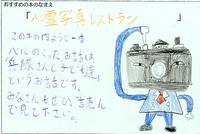 おすすめの本のなまえ
「心霊写真レストラン」
この本の内ようで一番
べにのこったお話は
「兵隊さんと子ども達」
というお話です。
みなさんもぜひ、読ん
で見て下さい。